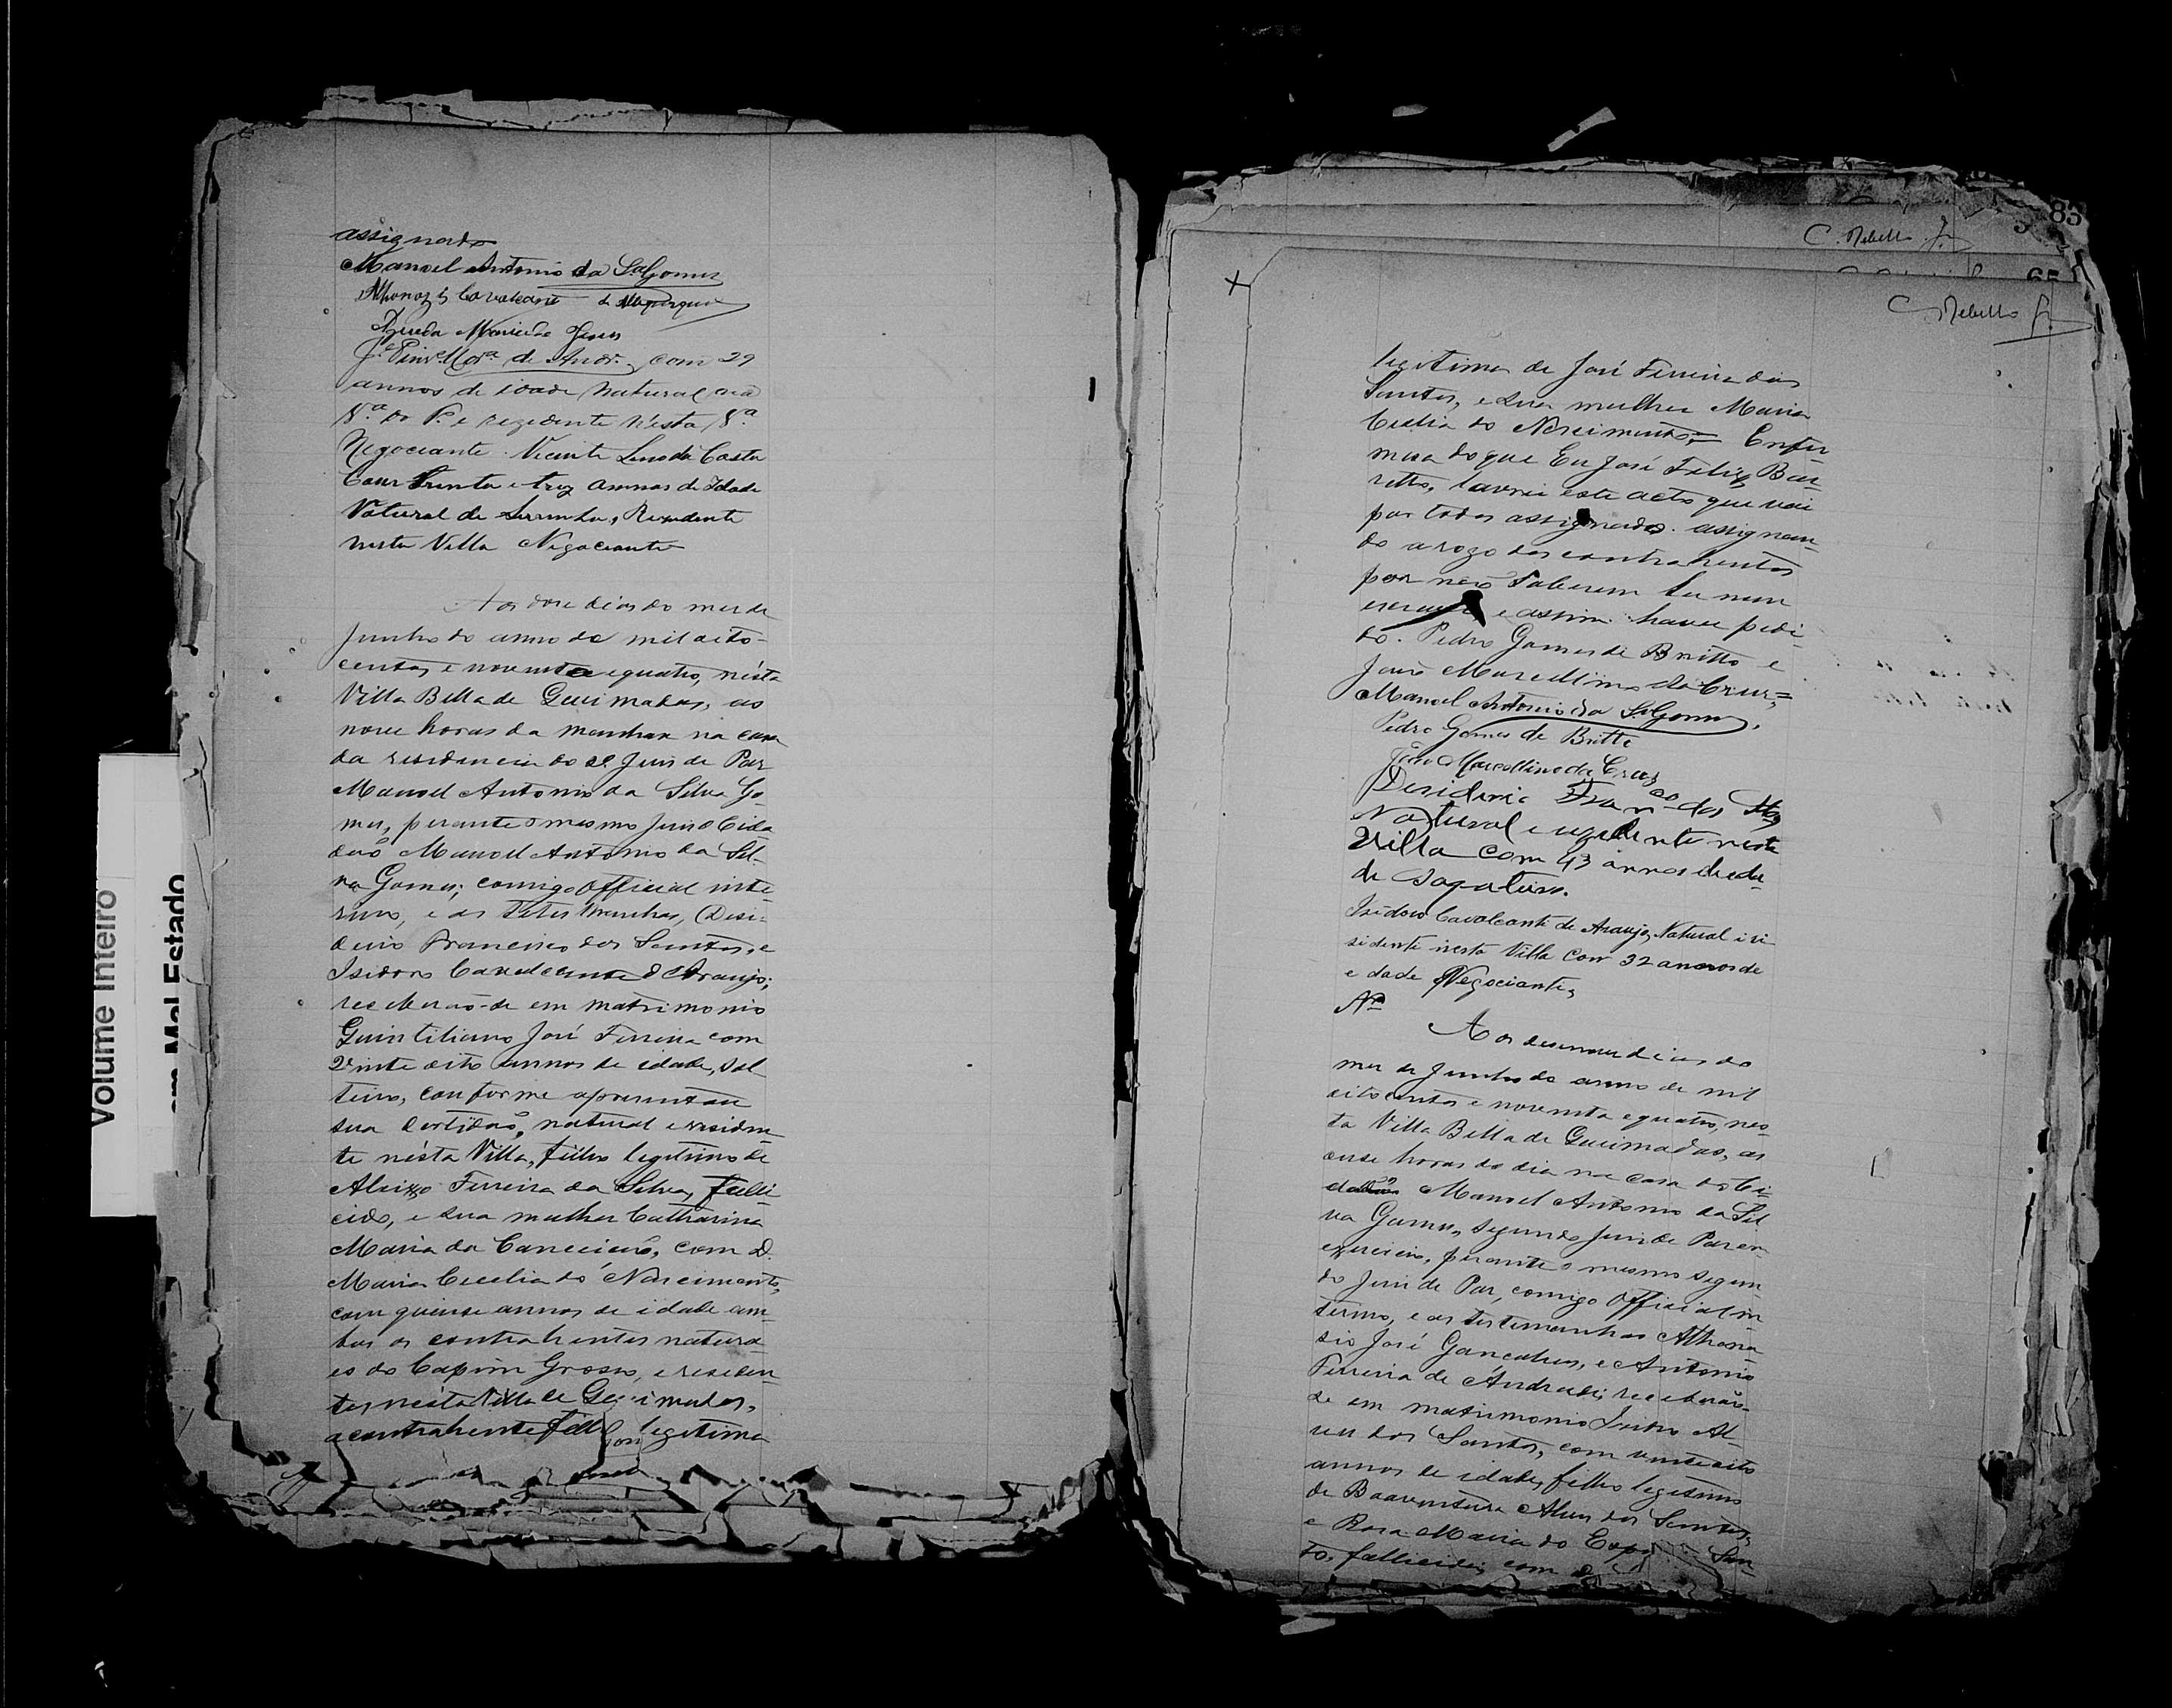 assignado
Manoel Antonio da Sª Gomes
Cavalcante de Albuquerque
Maria de Jesus
de Andr.e com 29
annos de idade natural da
Vª do P. e rezidente n'esta Vª
Negociante. Vicente Lino da Costa
Com trinta e trez annos de Idade
Natural de Serrinha, Rezidente
nesta Villa Negociante
Aos dose dias do mez de
Junho do anno de mil oito-
centos e noventa e quatro, n'ésta
Villa Bella de Queimadas, as
nove horas da manhan na casa
da residencia do 2º Juis de Paz
Manoel Antonio da Silva Go-
mes, perante o mesmo Juis o Cida
dão Manoel Antonio da Sil-
va Gomes; comigo Official inte
rino, e as testemunhas, Desi-
derio Francisco dos Santos, e
Isidoro Cavalcante d'Araujo;
receberão-se em matrimonio
Quintiliano José Ferreira com
vinte oito annos de idade, sol
teiro, conforme apresentou
sua certidão, natural e residen
te nésta Villa, filho legitimo de
Aleixo Ferreira da Silva, falli
cido, e sua mulher Catharina
Maria da Conceicão, com D.
Maria Cecilia do Nascimento,
com quinse annos de idade am
bos os contrahentes natura
es do Capim Grosso, e residen
tes nésta Villa de Queimadas,
a contrahente filha legitima
Volume Inteiro
em Mal Estado
83
C. Rebello Jr.
65
C Rebello Jr.
legitima de José Ferreira dos
Santos, e sua mulher Maria
Cecilia do Nascimento; Enfir
mesa do que Eu José Felix Bar
retto, lavrei este acto que vai
por todos assignado. assignan-
do a rogo dos contrahentes
por não saberem ler nem
escrever e assim haver pedi-
do. Pedro Gomes de Britto e
João Marcellino da Cruz=
Manoel Antonio da Sª Gomes.
Pedro Gomes de Britto
João Marcellino da Cruz
Desiderio Franco dos Stos
Natural e rezidente nesta
Villa com 43 annos de eda-
de
Isidoro Cavalcante de Araujo, Natural i ri
sidente nesta Villa com 32 annos de
e dade Negociante,
Nº
Aos desenove dias do
mez de Junho do anno de mil
oitocentos e noventa e quatro, nes-
ta Villa Bella de Queimadas, as
onse horas do dia na casa do Ci-
dadão Manoel Antonio da Sil
va Gomes, segundo Juis de Paz em
exercicio, perante o mesmo segun
do Juis de Paz, comigo Official in
terino, e as testemunhas Athana-
sio José Goncalves, e Antonio
Ferreira de Andrade; receberão-
se em matrimonio Al-
ves dos Santos, com vinte oito
annos de idade, filho legitimo
de Boaventura Alves dos Santos,
e Rosa Maria do San-
to, fallicidos, com